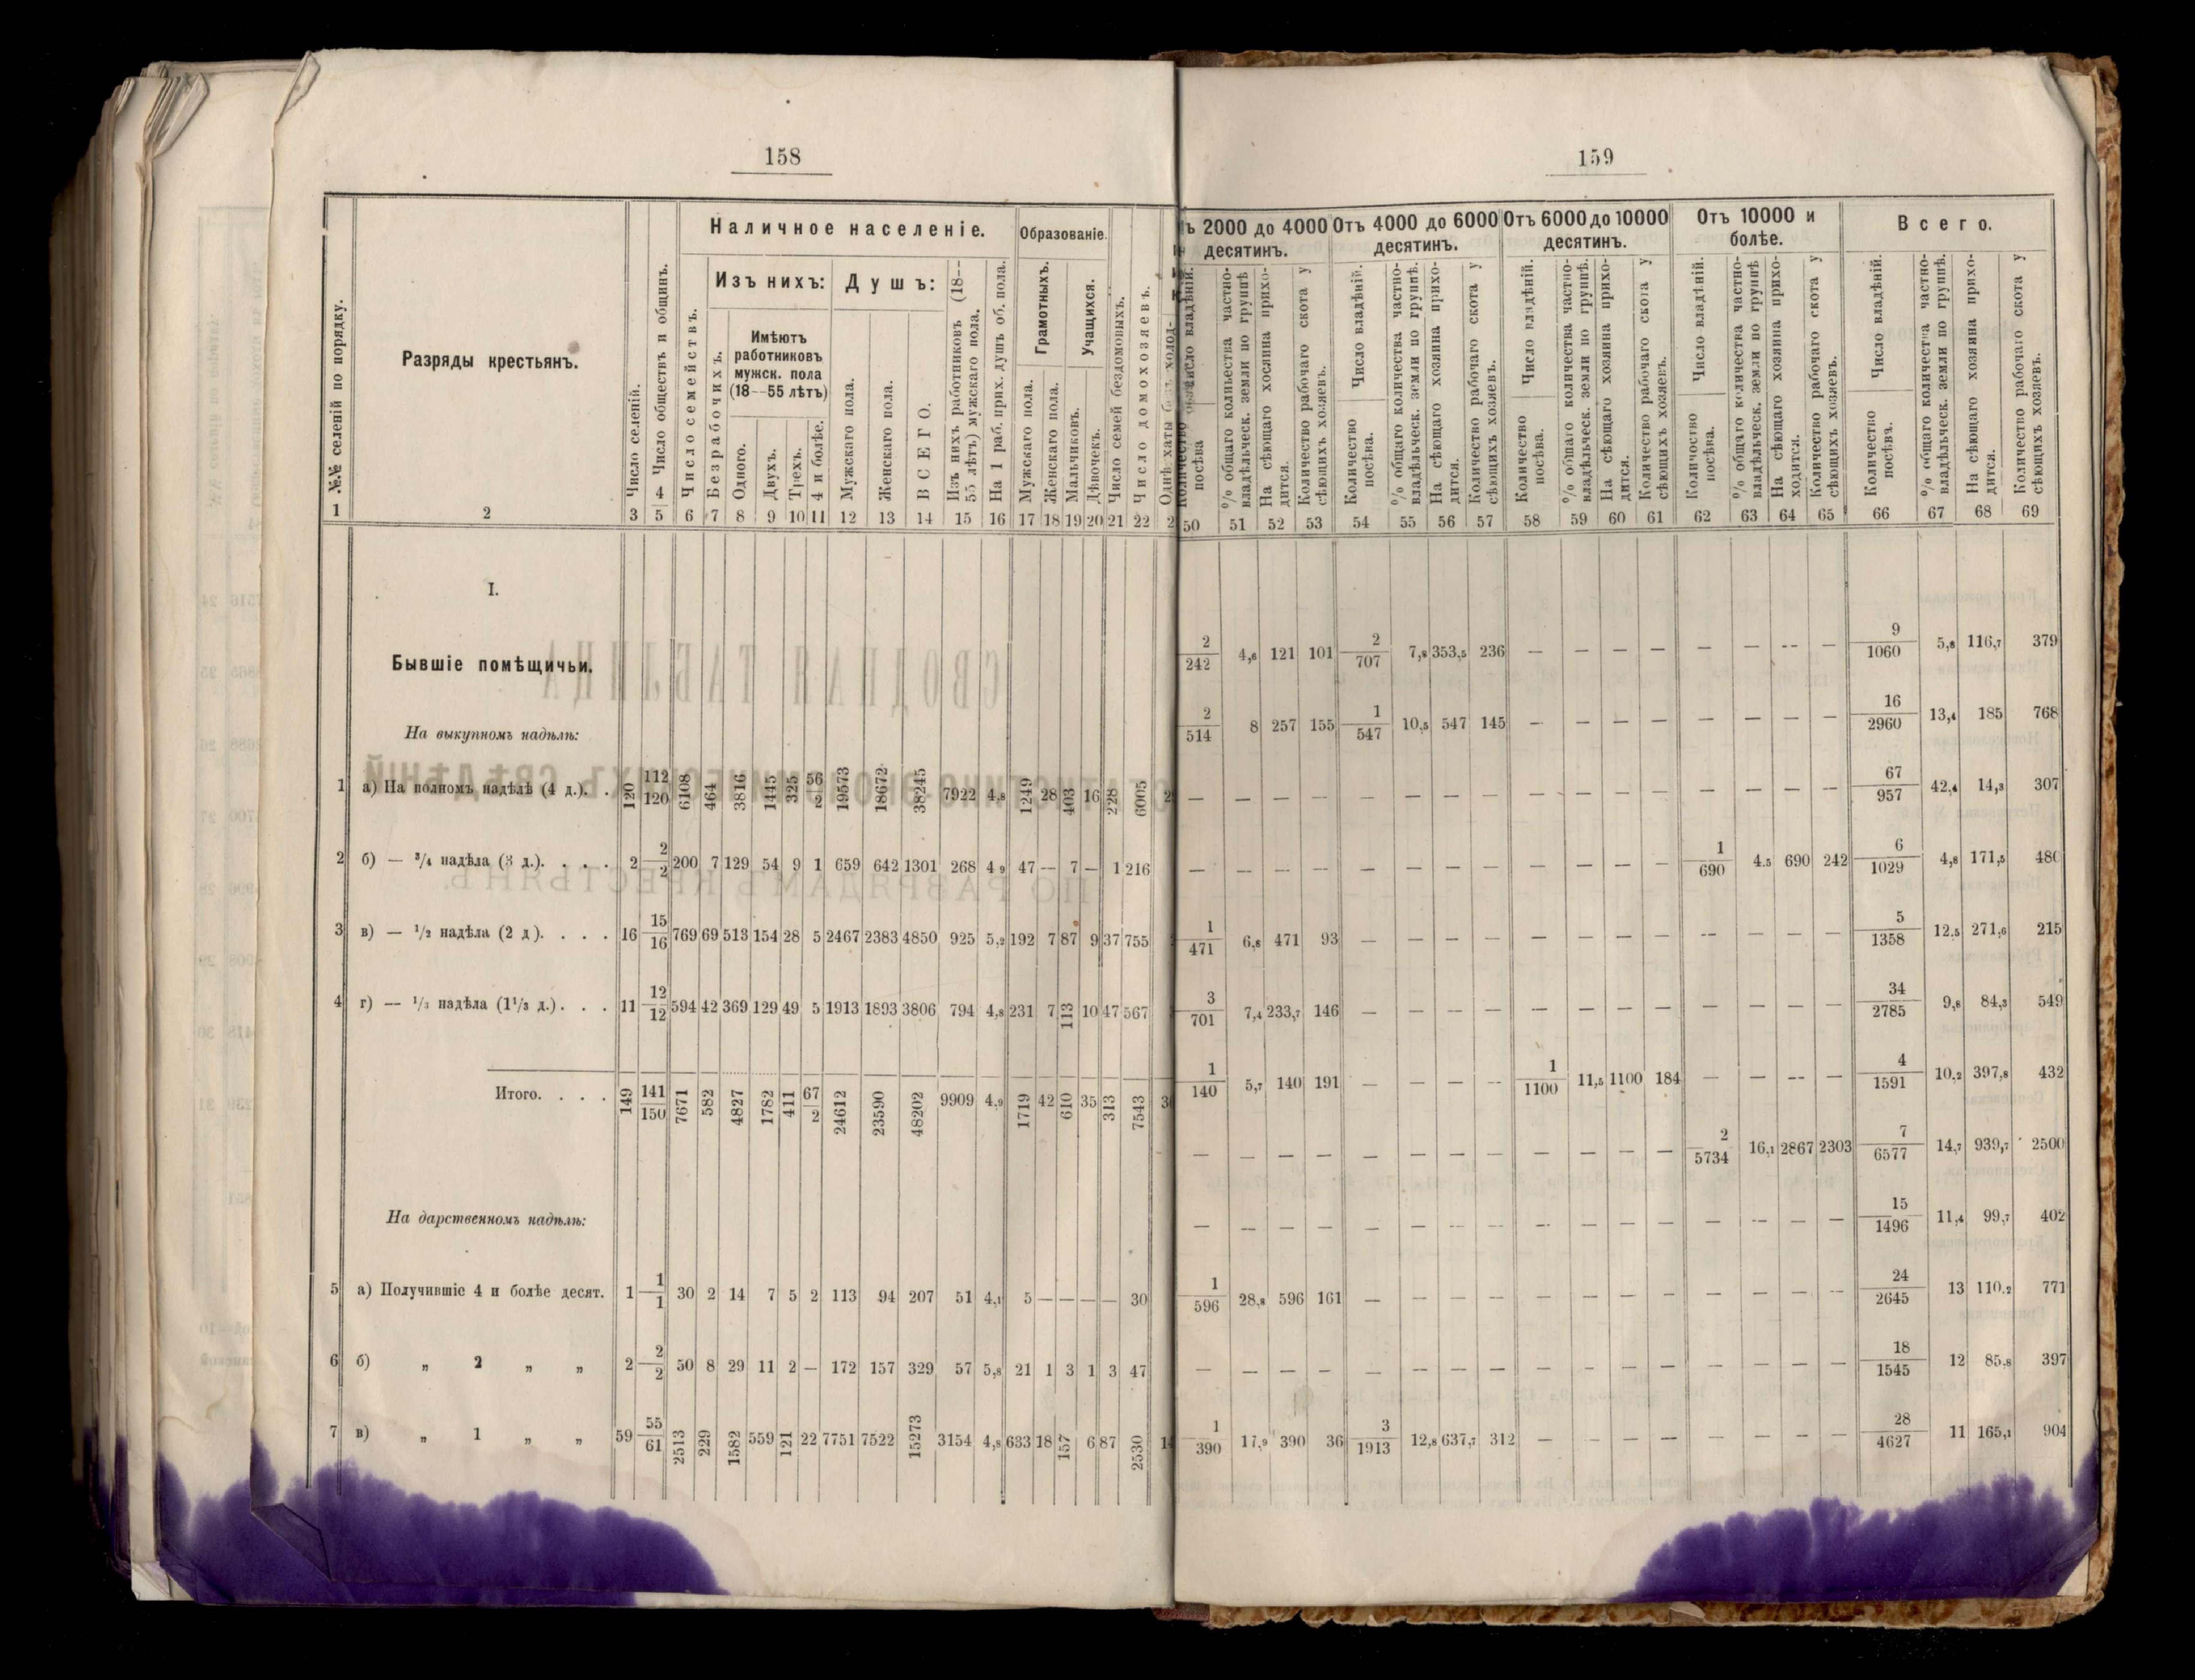 158
№№ селеній по порядку.
Разряды крестьянъ.
Число селеній.
Число обществъ и общинъ.
Наличное населеніе.
Число семействъ.
Изъ нихъ:
Безрабочихъ.
Имѣютъ
работниковъ
мужск. пола
(18—55 лѣтъ)
Одного.
Двухъ.
Трехъ.
4 и болѣе.
Душъ:
Мужскаго пола.
Женскаго пола.
ВСЕГО.
Изъ нихъ работниковъ (18—
55 лѣтъ) мужскаго пола.
На 1 раб. прих. душъ об. пола.
Образованіе.
Грамотныхъ.
Учащихся.
Мужскаго пола.
Женскаго пола.
Мальчиковъ.
Дѣвочекъ.
Число семей бездомовыхъ.
Число домохозяевъ.
1 2 3 4 5 6 7 8 9 10 11 12 13 14 15 16 17 18 19 20 21 22
I.
Бывшіе помѣщичьи.
На выкупномъ надѣлѣ:
1 а) На полномъ надѣлѣ (4 д.). . 120 112/120 6108 464 3816 1445 325 56/2 19573 18672 38245 7922 4,8 1249 28 403 16 228 6005
2 б) — ³/₄ надѣла (3 д.). . . . 2 2/2 200 7 129 54 9 1 659 642 1301 268 4 9 47 — 7 — 1 216
3 в) — ¹/₂ надѣла (2 д). . . . 16 15/16 769 69 513 154 28 5 2467 2383 4850 925 5,2 192 7 87 9 37 755
4 г) — ¹/₃ надѣла (1¹/₃ д.). . . 11 12/12 594 42 369 129 49 5 1913 1893 3806 794 4,8 231 7 113 10 47 567
Итого. . . . 149 141/150 7671 582 4827 1782 411 67/2 24612 23590 48202 9909 4,9 1719 42 610 35 313 7543
На дарственномъ надѣлѣ:
5 а) Получившіе 4 и болѣе десят. 1 1/1 30 2 14 7 5 2 113 94 207 51 4,1 5 — — — — 30
6 б) „ 2 „ „ 2 2/2 50 8 29 11 2 — 172 157 329 57 5,8 21 1 3 1 3 47
7 в) „ 1 „ „ 59 55/61 2513 229 1582 559 121 22 7751 7522 15273 3154 4,8 633 18 157 6 87 2530
159
ъ 2000 до 4000
десятинъ.
Отъ 4000 до 6000
десятинъ.
Отъ 6000 до 10000
десятинъ.
Отъ 10000 и
болѣе.
Всего.
посѣва
% общаго количества частно-
владѣльческ. земли по группѣ
На сѣющаго хозяина прихо-
дится.
Количество рабочаго скота у
сѣющихъ хозяевъ.
Число владѣній.
Количество
посѣва.
% общаго количества частно-
владѣльческ. земли по группѣ.
На сѣющаго хозяина прихо-
дится.
Количество рабочаго скота у
сѣющихъ хозяевъ.
Число владѣній.
Количество
посѣва.
% общаго количества частно-
владѣльческ. земли по группѣ.
На сѣющаго хозяина прихо-
дится.
Количество рабочаго скота у
сѣющихъ хозяевъ.
Число владѣній.
Количество
посѣва.
% общаго количества частно-
владѣльческ. земли по группѣ
На сѣющаго хозяина прихо-
ходится.
Количество рабочаго скота у
сѣющихъ хозяевъ.
Число владѣній.
Количество
посѣва.
% общаго количества частно-
владѣльческ. земли по группѣ.
На сѣющаго хозяина прихо-
дится.
Количество рабочаго скота у
сѣющихъ хозяевъ.
50 51 52 53 54 55 56 57 58 59 60 61 62 63 64 65 66 67 68 69
2/242 4,6 121 101 2/707 7,8 353,5 236 — — — — — — — — 9/1060 5,8 116,7 379
2/514 8 257 155 1/547 10,5 547 145 — — — — — — — — 16/2960 13,4 185 768
— — — — — — — — — — — — — — — — 67/957 42,4 14,3 307
— — — — — — — — — — — — 1/690 4.5 690 242 6/1029 4,8 171,5 480
1/471 6,8 471 93 — — — — — — — — — — — — 5/1358 12.5 271,6 215
3/701 7,4 233,7 146 — — — — — — — — — — — — 34/2785 9,8 84,3 549
1/140 5,7 140 191 — — — — 1/1100 11,5 1100 184 — — — — 4/1591 10,2 397,8 432
— — — — — — — — — — — — 2/5734 16,1 2867 2303 7/6577 14,7 939,7 2500
— — — — — — — — — — — — — — — — 15/1496 11,4 99,7 402
1/596 28,8 596 161 — — — — — — — — — — — — 24/2645 13 110.2 771
— — — — — — — — — — — — — — — — 18/1545 12 85,8 397
1/390 17,9 390 36 3/1913 12,8 637,7 312 — — — — — — — — 28/4627 11 165,1 904